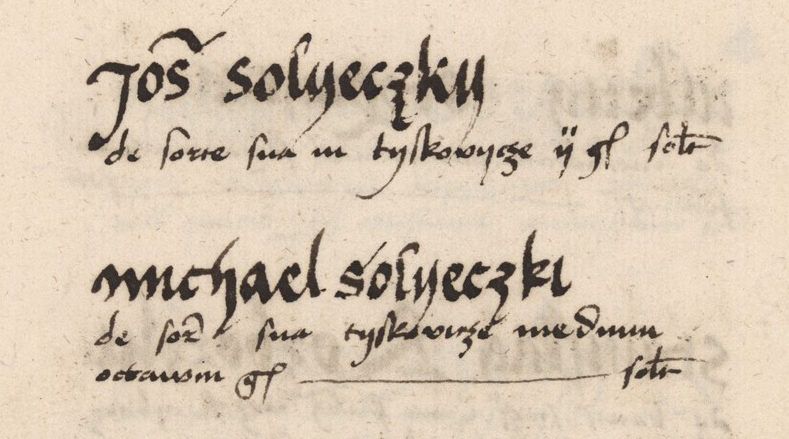 Jos̃ Solyeczky
de sorte sua in tyskovycze ÿ gſ solt
Michael Solyeczki
de sor̃ sua tyskovicze medium
octawm gſ solt